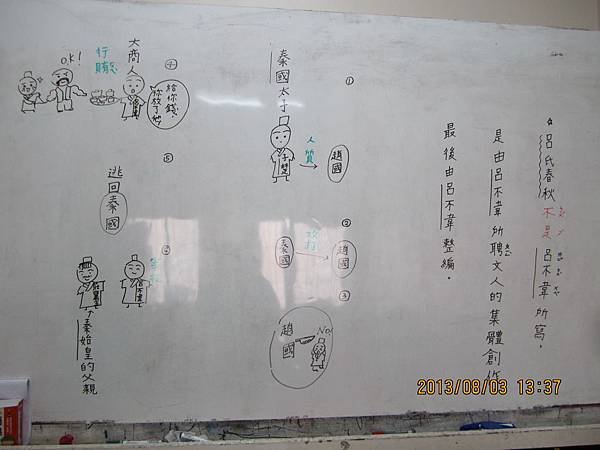 ☆呂氏春秋不是呂不韋所寫。
是由呂不韋所聘文人的集體創作
最後由呂不韋整編。
①
秦國太子
子楚
人質
趙國
②
秦國
攻打
趙國
③
趙國
No!
④
大商人
給你錢,
你放了他
行賄
OK!
⑤
逃回秦國
⑥
秦始皇的父親
2013/08/03 13:37